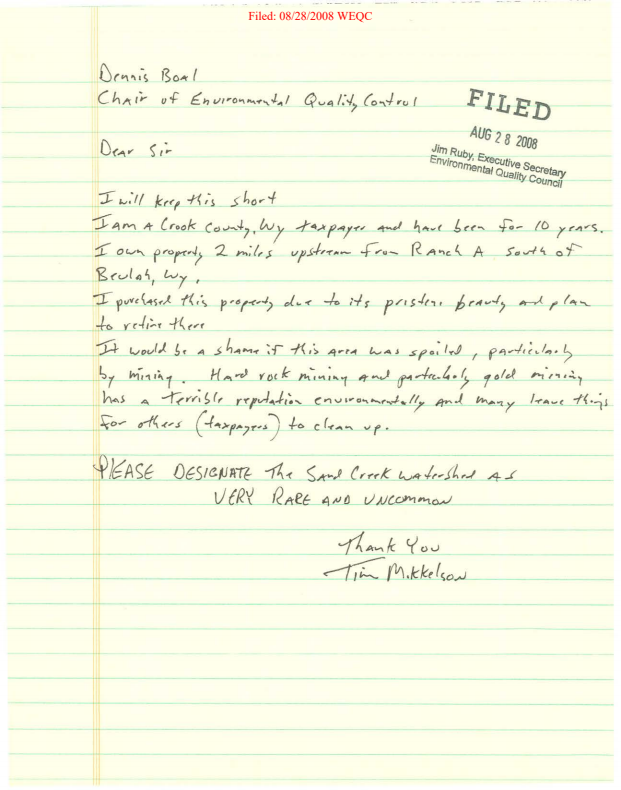 Filed: 08/28/2008 WEQC
Dennis Boal
Chair of Environmental Quality Control
FILED
AUG 28 2008
Jim Ruby, Executive Secretary
Environmental Quality Council
Dear Sir
I will keep this short
I am a Crook County, Wy taxpayer and have been for 10 years.
I own property 2 miles upstream from Ranch A south of
Beulah, Wy.
I purchased this property due to its pristene beauty and plan
to retire there
It would be a shame if this area was spoiled, particularly
by mining. Hard rock mining and particularly gold mining
has a terrible reputation environmentally and many leave things
for others (taxpayers) to clean up.
PLEASE DESIGNATE The Sand Creek watershed AS
VERY RARE AND UNCOMMON
Thank You
Tim Mikkelson